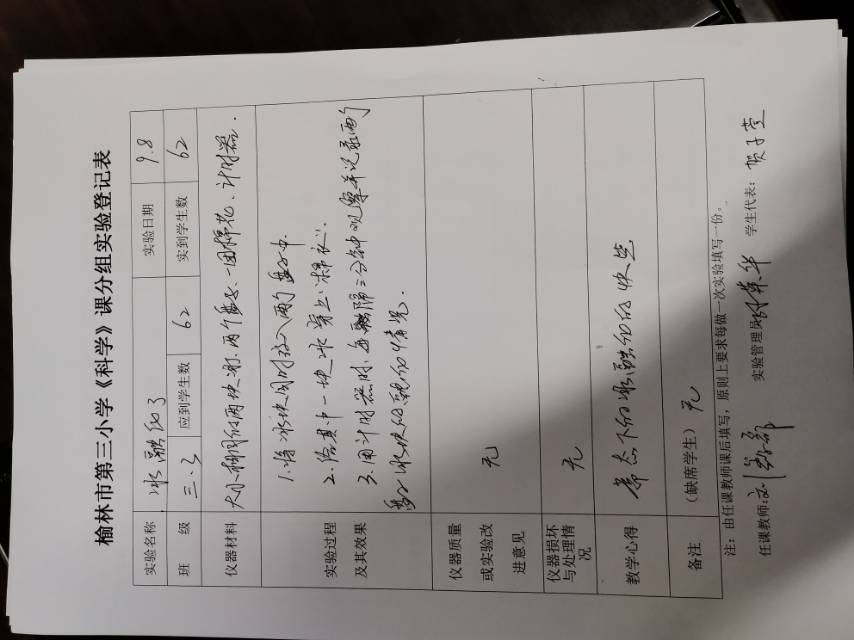 榆林市第三小学《科学》课分组实验登记表
实验名称 冰融化了 实验日期 9.8
班 级 三.3 应到学生数 62 实到学生数 62
仪器材料 大小相同的两块冰、两个盘子、一团棉花、计时器.
实验过程及其效果
1.将冰块同时放入两个盘子中.
2.给其中一块冰穿上"棉衣".
3.用计时器计时,每隔三分钟观察并记录两个
盘子冰块的融化情况.
仪器质量或实验改进意见 无
仪器损坏与处理情况 无
教学心得 常态下的冰融化的快些
备注 (缺席学生) 无
注:由任课教师课后填写,原则上要求每做一次实验填写一份。
任课教师: 刘 实验管理员: 学生代表: 贺子萱